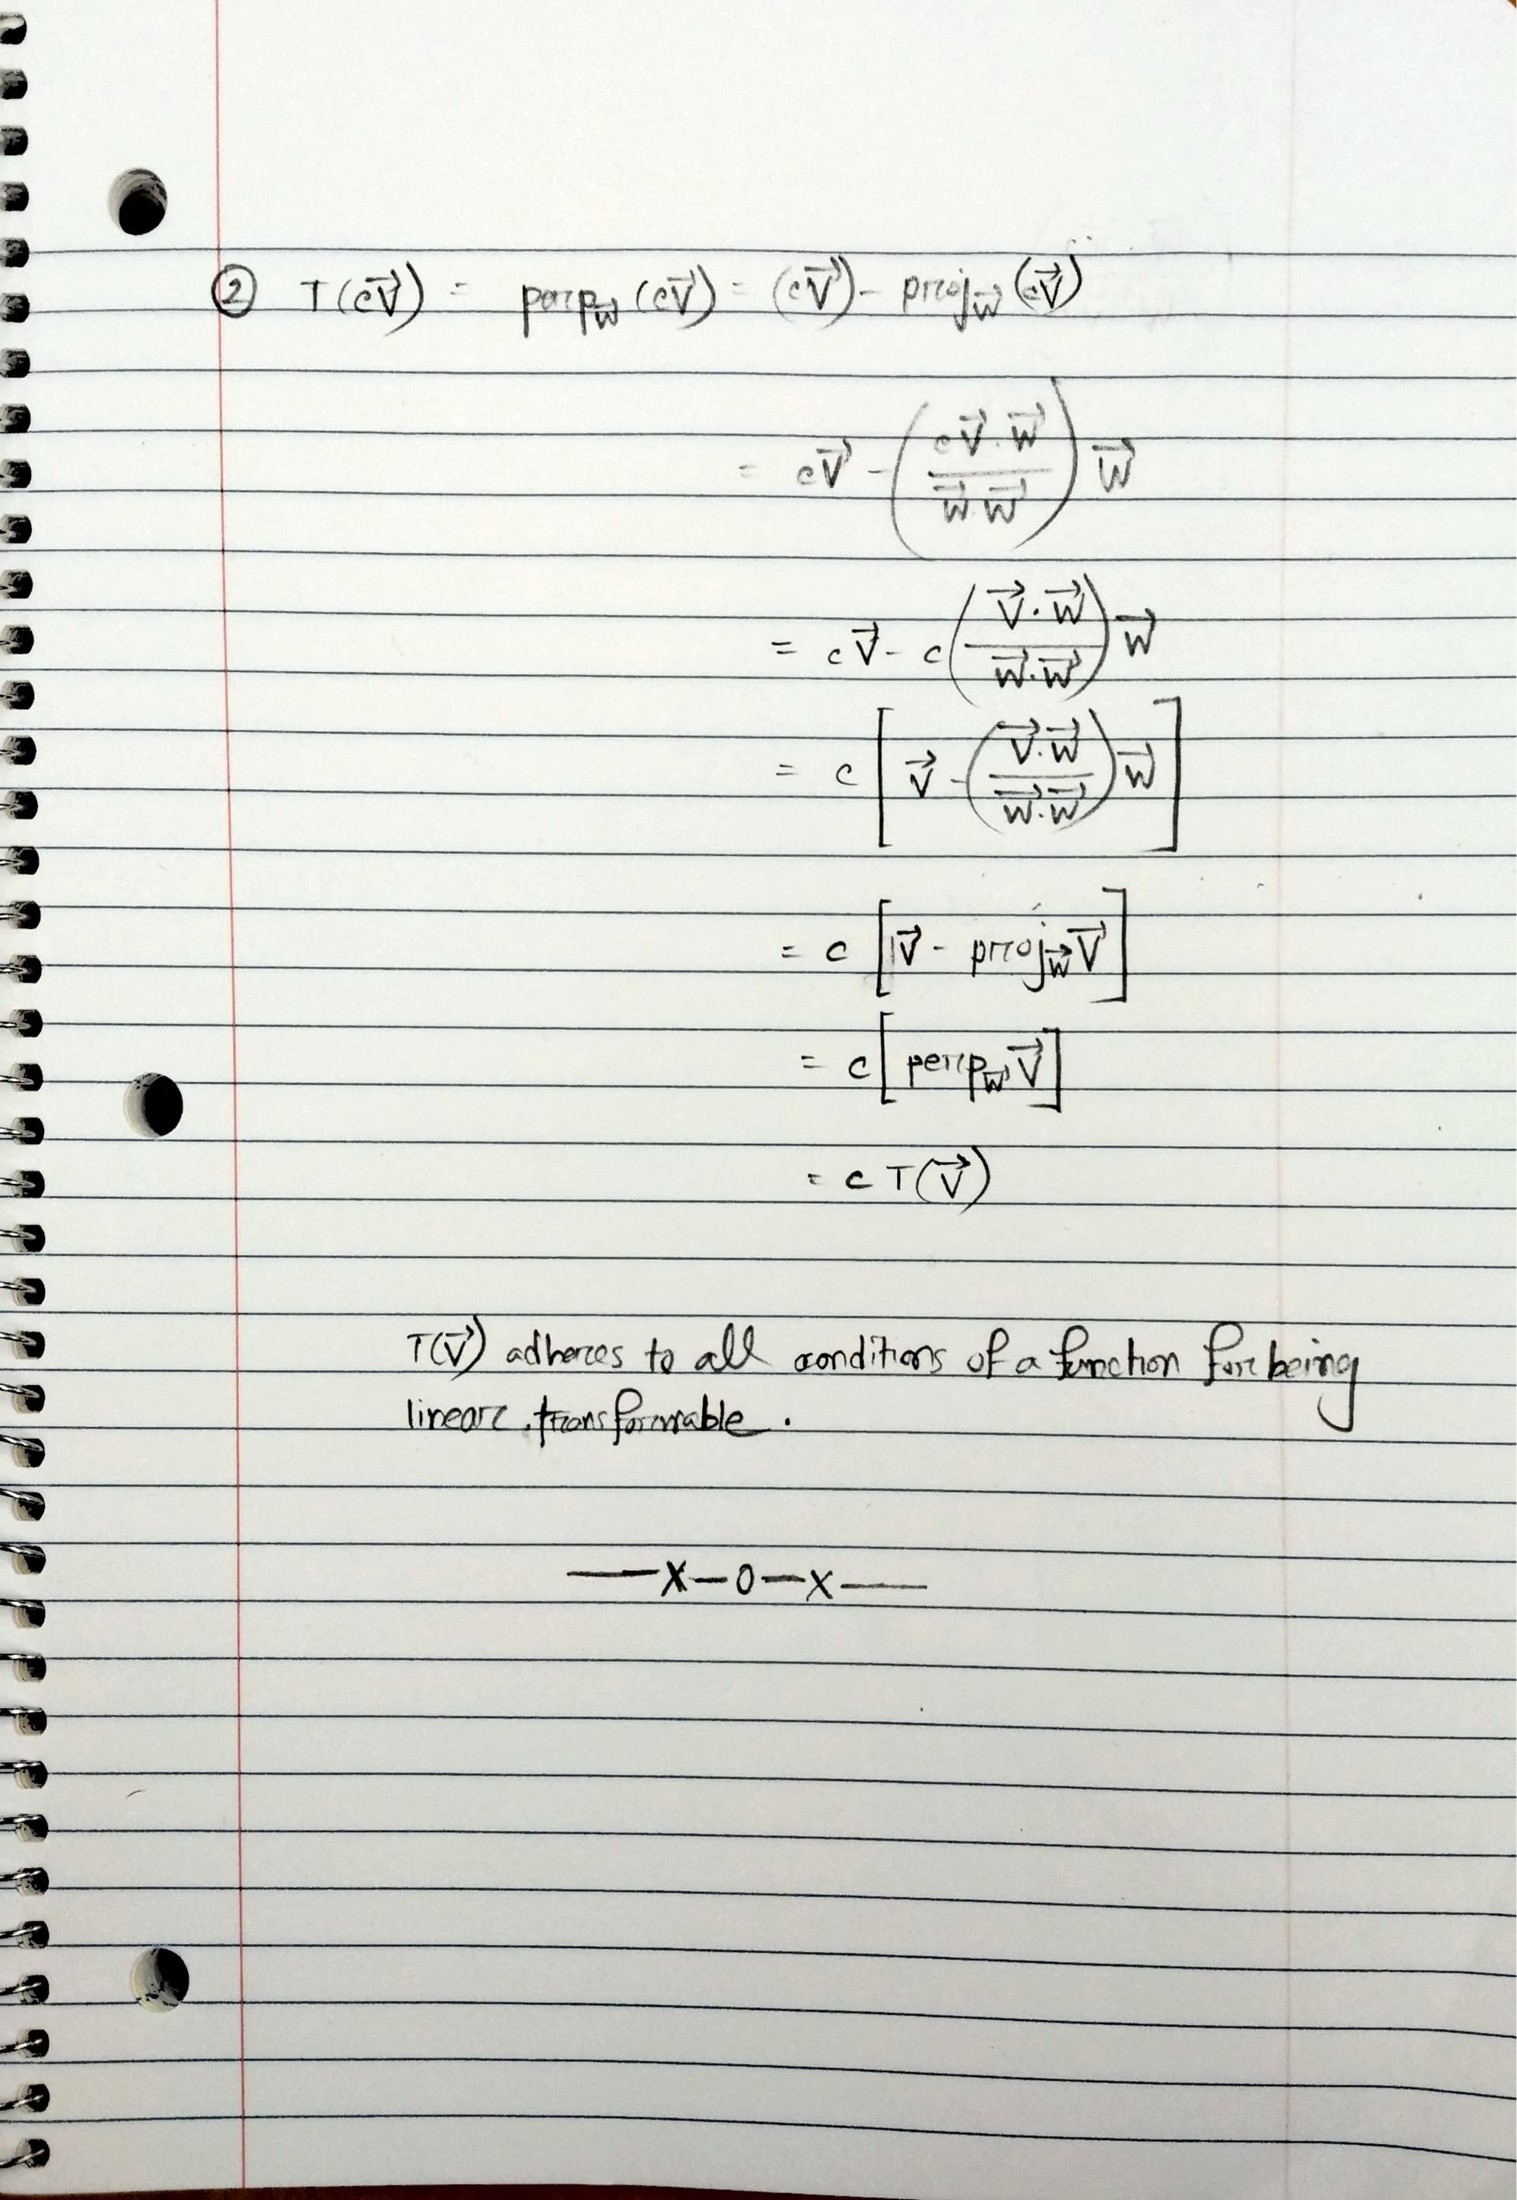 ② T(c\vec{V}) = perp_{\vec{W}} (c\vec{V}) = (c\vec{V}) - proj_{\vec{W}} (c\vec{V})
= c\vec{V} - \left( \frac{c\vec{V} \cdot \vec{W}}{\vec{W} \cdot \vec{W}} \right) \vec{W}
= c\vec{V} - c \left( \frac{\vec{V} \cdot \vec{W}}{\vec{W} \cdot \vec{W}} \right) \vec{W}
= c \left[ \vec{V} - \left( \frac{\vec{V} \cdot \vec{W}}{\vec{W} \cdot \vec{W}} \right) \vec{W} \right]
= c \left[ \vec{V} - proj_{\vec{W}} \vec{V} \right]
= c \left[ perp_{\vec{W}} \vec{V} \right]
= c T(\vec{V})
T(\vec{V}) adheres to all conditions of a function for being
linear transformable.
—x—o—x—